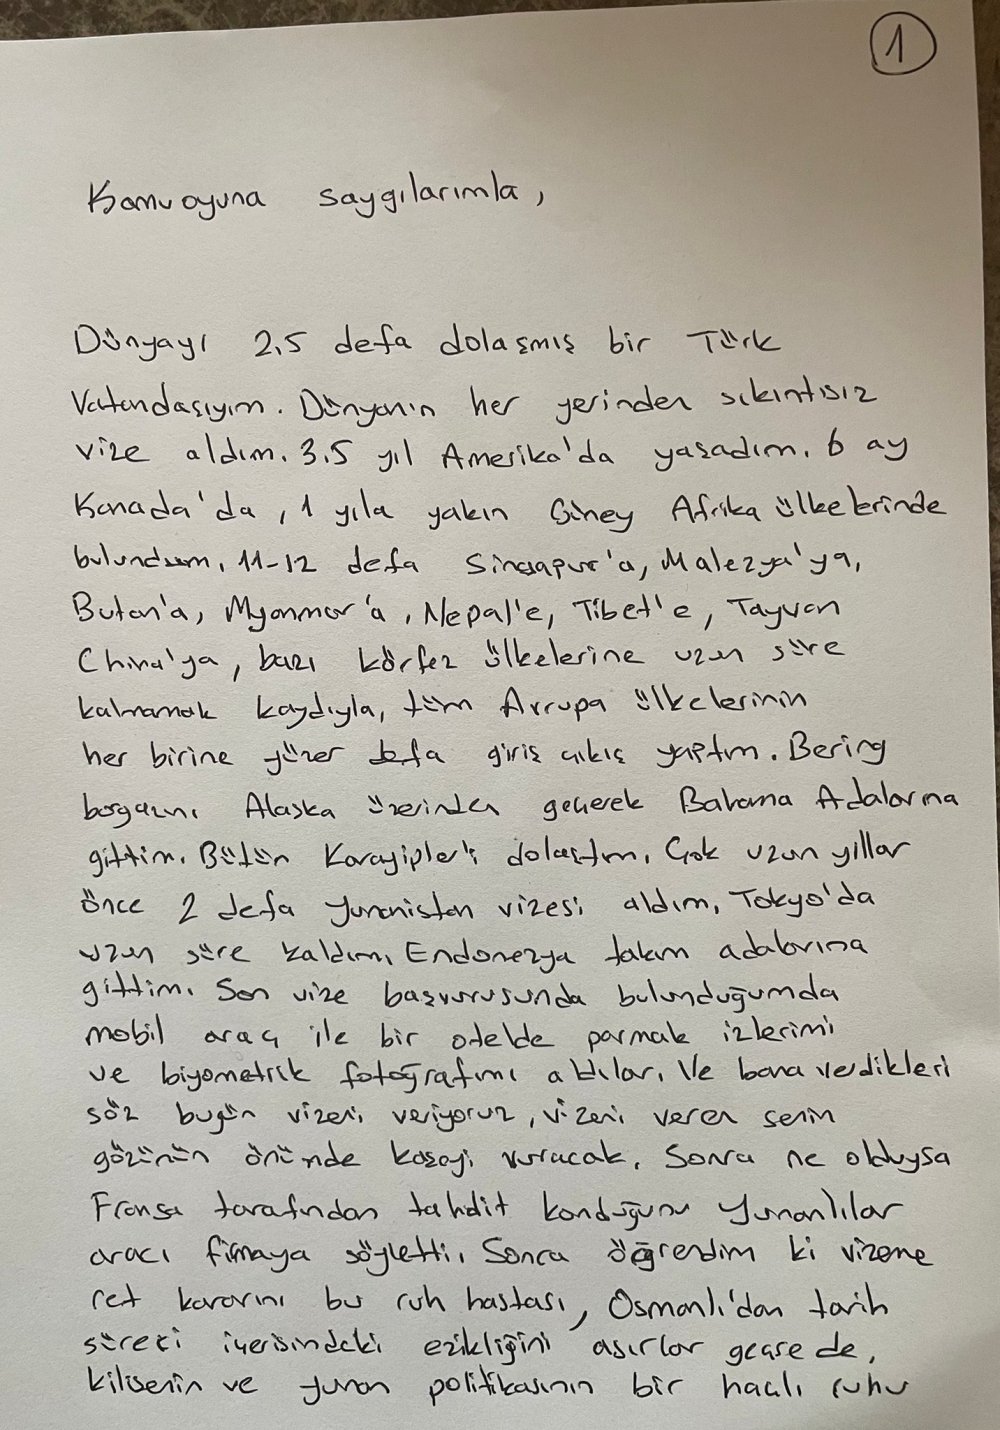 1
Kamuoyuna saygılarımla,
Dünyayı 2,5 defa dolaşmış bir Türk
Vatandaşıyım. Dünyanın her yerinden sıkıntısız
vize aldım. 3.5 yıl Amerika'da yaşadım. 6 ay
Kanada'da, 1 yıla yakın Güney Afrika ülkelerinde
bulundum. 11-12 defa Singapur'a, Malezya'ya,
Butan'a, Myanmar'a, Nepal'e, Tibet'e, Tayvan
China'ya, bazı körfez ülkelerine uzun süre
kalmamak kaydıyla, tüm Avrupa ülkelerinin
her birine yüzer defa giriş çıkış yaptım. Bering
boğazını Alaska üzerinden geçerek Bahama Adalarına
gittim. Bütün Karayipler'i dolaştım. Çok uzun yıllar
önce 2 defa Yunanistan vizesi aldım. Tokyo'da
uzun süre kaldım. Endonezya takım adalarına
gittim. Son vize başvurusunda bulunduğumda
mobil araç ile bir otelde parmak izlerimi
ve biyometrik fotoğrafımı aldılar. Ve bana verdikleri
söz bugün vizeni veriyoruz, vizeni veren senin
gözünün önünde kaşeyi vuracak. Sonra ne olduysa
Fransa tarafından tahdit konduğunu Yunanlılar
aracı firmaya söyletti. Sonra öğrendim ki vizeme
ret kararını bu ruh hastası, Osmanlı'dan tarih
süreci içerisindeki ezikliğini asırlar geçse de,
kilisenin ve yunan politikasının bir haçlı ruhu